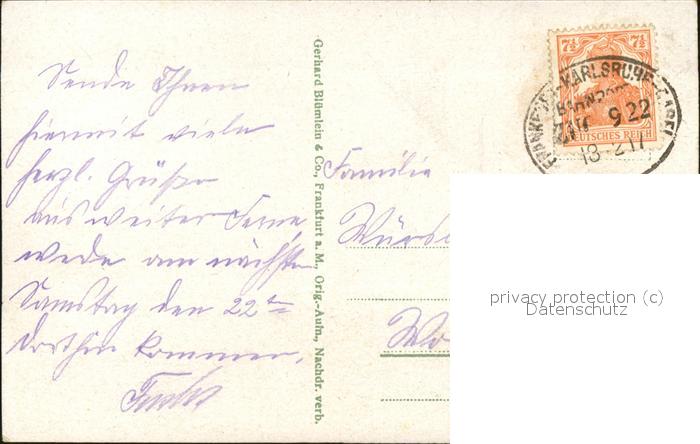 Sende Ihnen
hiermit viele
herzl. Grüße
aus weiter Ferne,
werde am nächsten
Samstag den 22ten
dorthin kommen.
Fuchs
Gerhard Blümlein & Co., Frankfurt a. M., Orig.-Aufn., Nachdr. verb.
7½ 7½
DEUTSCHES REICH
KARLSRUHE
BAHNPOST
ZUG 922
18 2 17
Familie
privacy protection (c)
Datenschutz